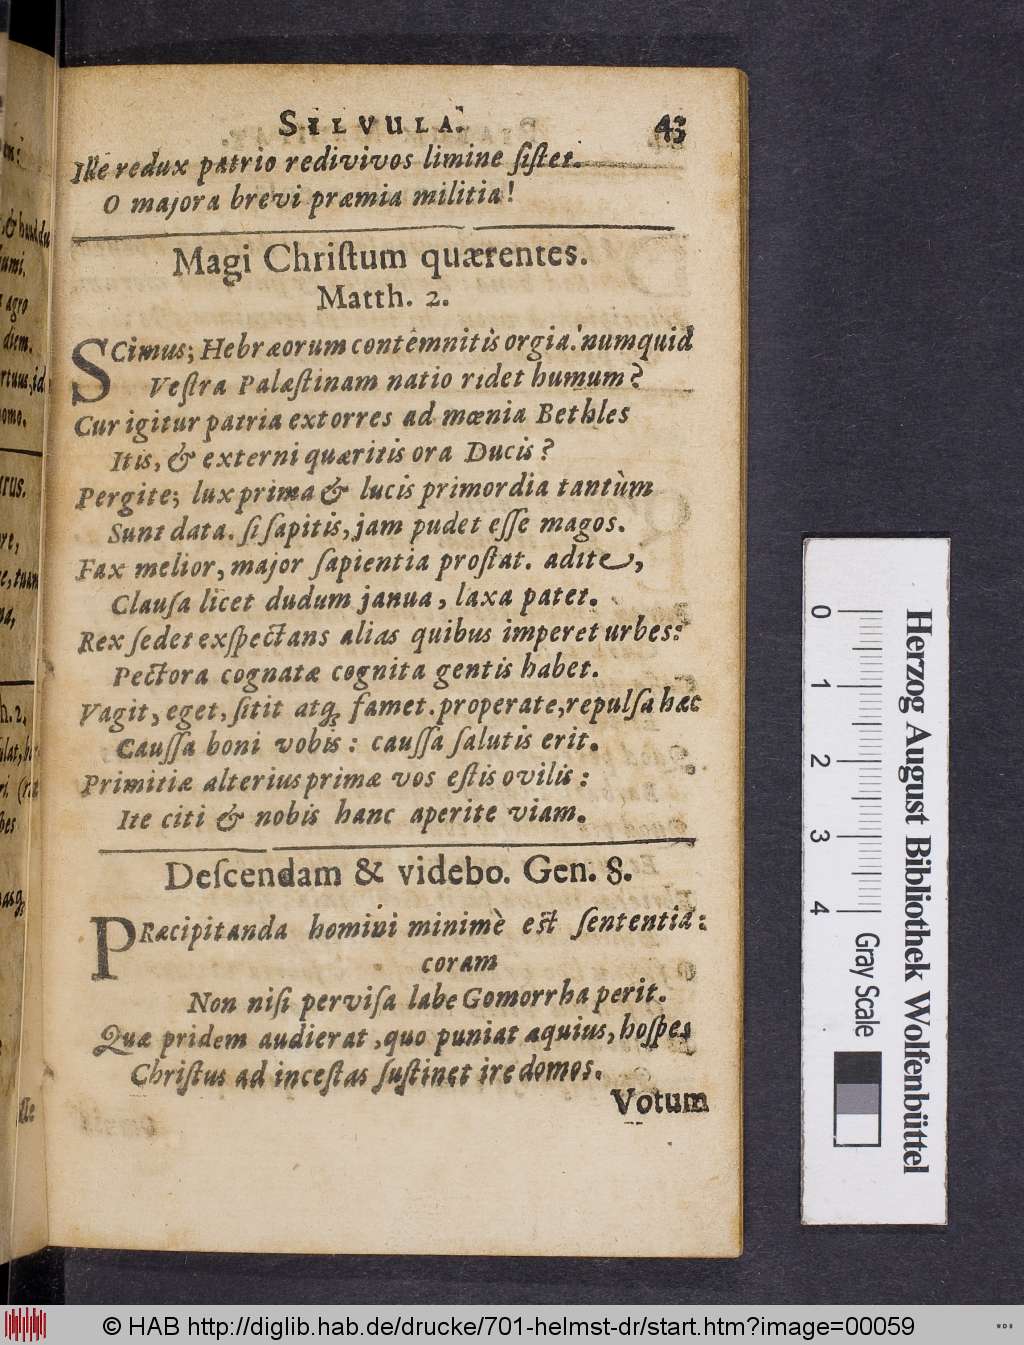 SILVULA. 43
Ille redux patrio redivivos limine ſiſtet.
O majora brevi præmia militia!
Magi Chriſtum quærentes.
Matth. 2.
SCimus; Hebræorum contemnitis orgia: numquid
Veſtra Palæſtinam natio ridet humum?
Cur igitur patria extorres ad mœnia Bethles
Itis, & externi quæritis ora Ducis?
Pergite; lux prima & lucis primordia tantùm
Sunt data. ſi ſapitis, jam pudet eſſe magos.
Fax melior, major ſapientia proſtat. adite,
Clauſa licet dudum janua, laxa patet.
Rex ſedet exſpectans alias quibus imperet urbes:
Pectora cognatæ cognita gentis habet.
Vagit, eget, ſitit atq; famet. properate, repulſa hæc
Cauſſa boni vobis: cauſſa ſalutis erit.
Primitiæ alterius primæ vos eſtis ovilis:
Ite citi & nobis hanc aperite viam.
Deſcendam & videbo. Gen. 8.
PRæcipitanda homini minimè eſt ſententia:
coram
Non niſi perviſa labe Gomorrha perit.
Quæ pridem audierat, quo puniat æquius, hoſpes
Chriſtus ad inceſtas ſuſtinet ire domos.
Votum
0 1 2 3 4
Gray Scale
Herzog August Bibliothek Wolfenbüttel
© HAB http://diglib.hab.de/drucke/701-helmst-dr/start.htm?image=00059